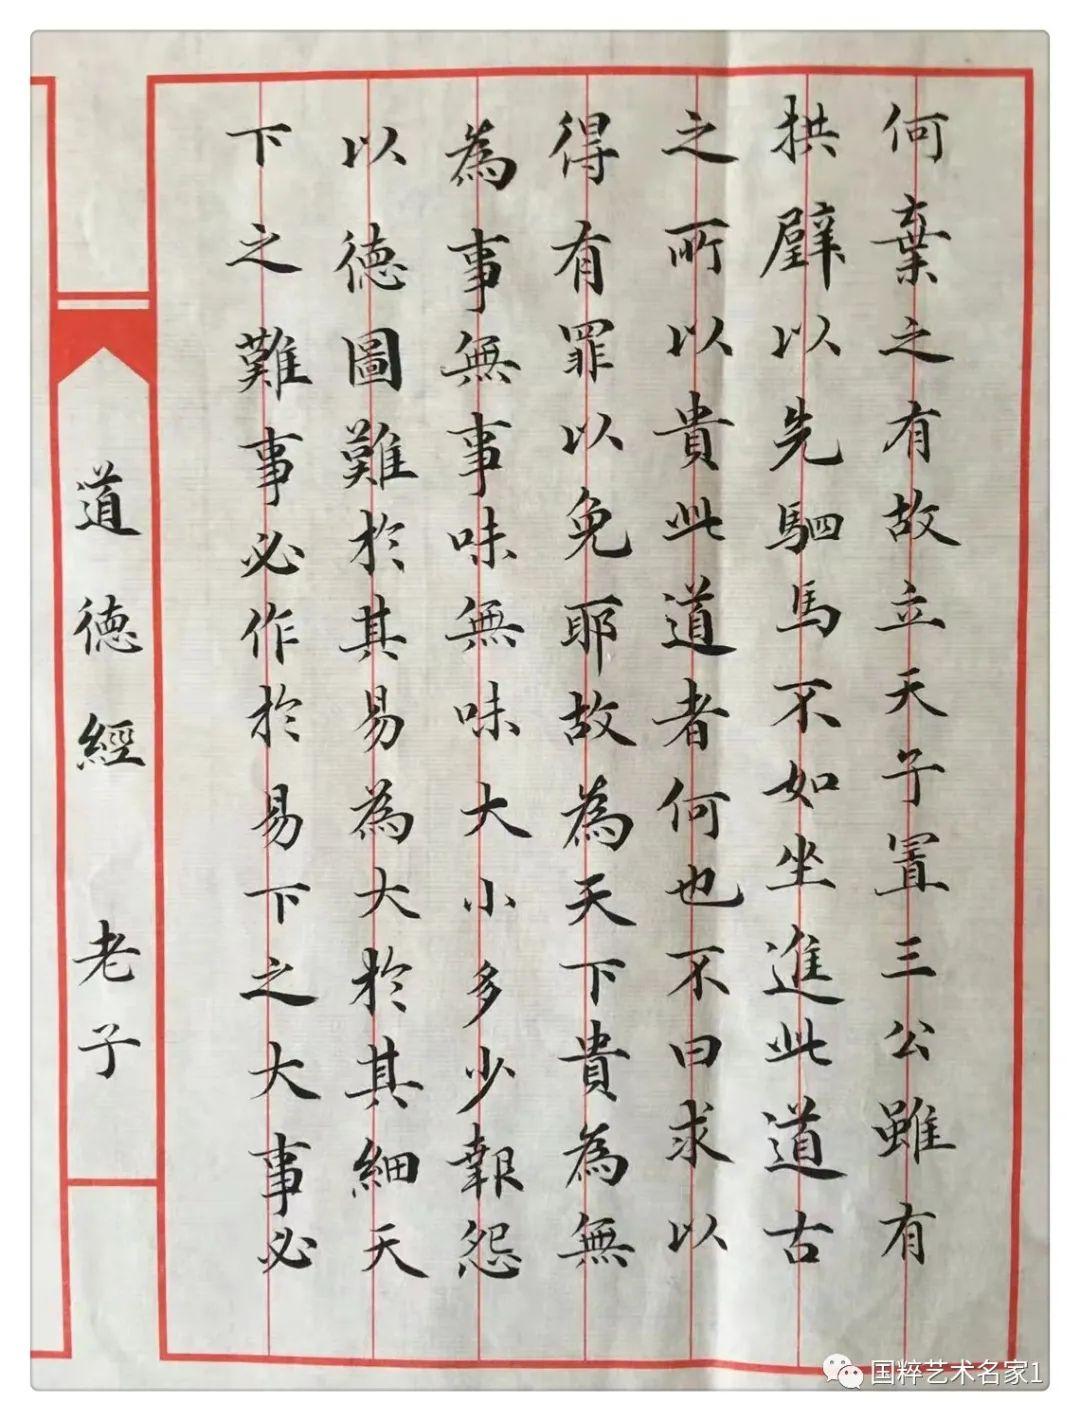 何棄之有故立天子置三公雖有
拱璧以先駟馬不如坐進此道古
之所以貴此道者何也不曰求以
得有罪以免耶故為天下貴為無
為事無事味無味大小多少報怨
以德圖難於其易為大於其細天
下之難事必作於易下之大事必
道德經 老子
国粹艺术名家1